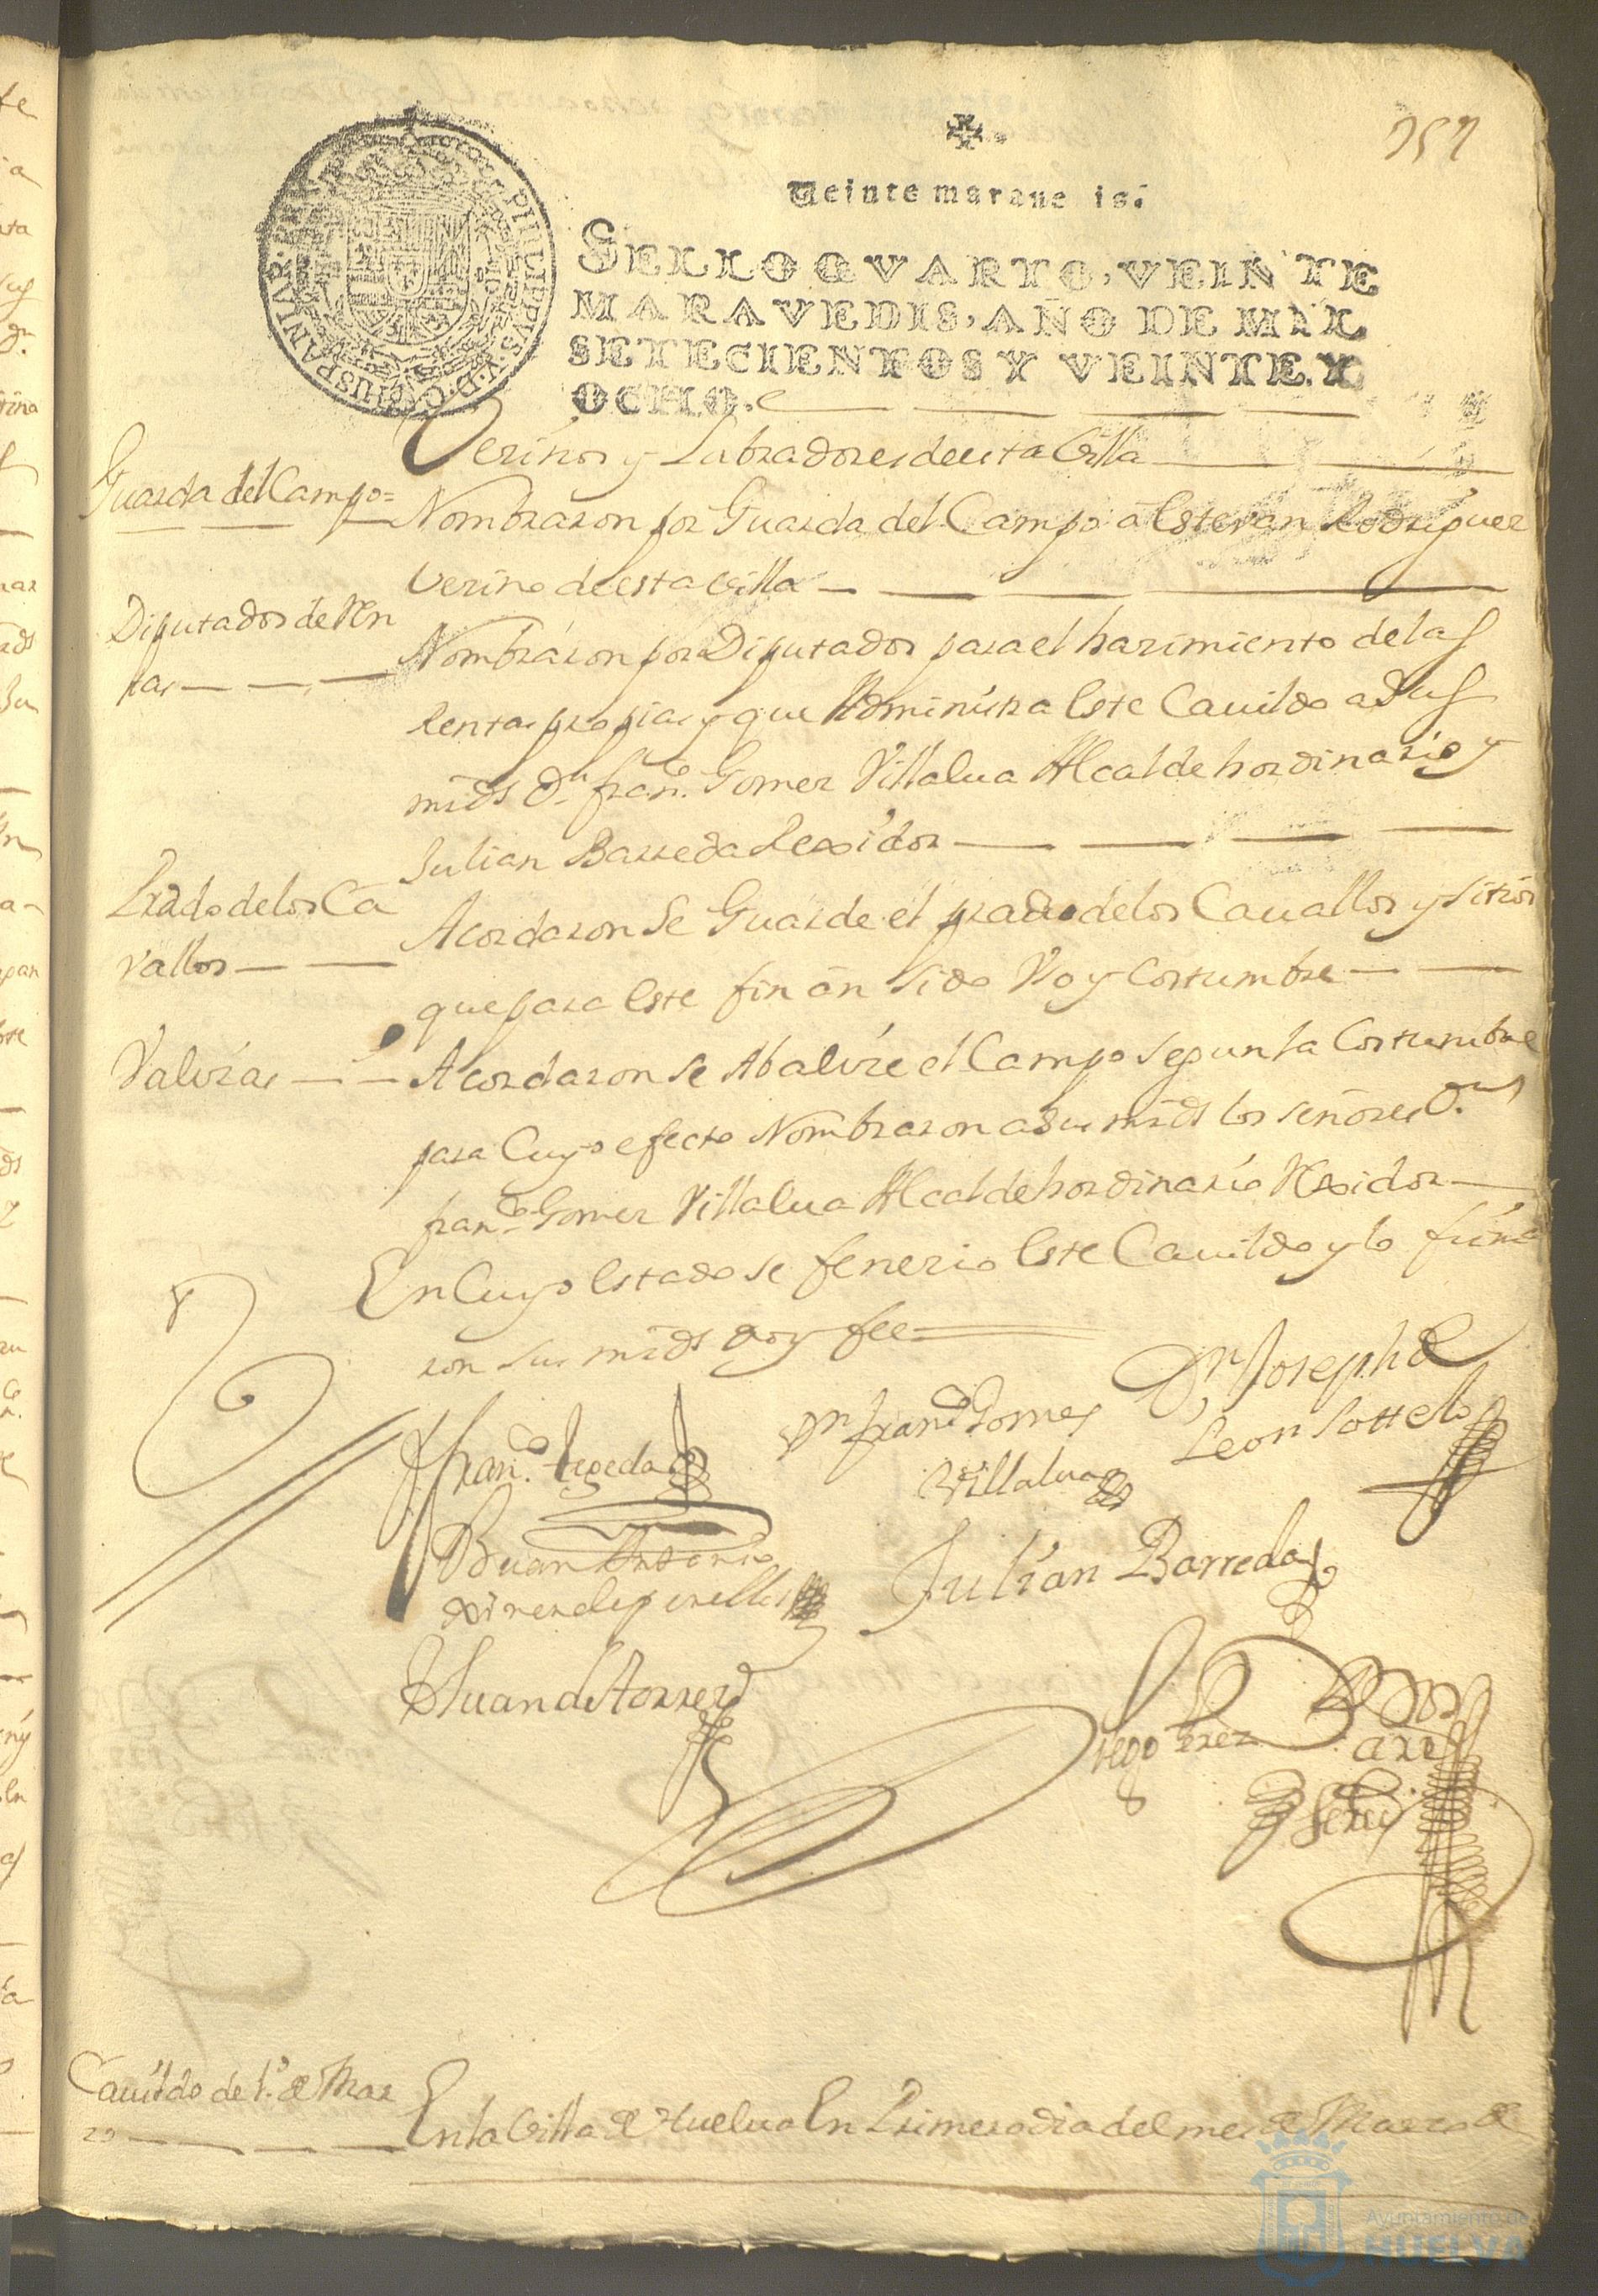 757
Veinte maraue is.
SELLO QVARTO, VEINTE
MARAVEDIS, AÑO DE MIL
SETECIENTOS Y VEINTE Y
OCHO.
PHILIPPVS. V. D. G. HISPANIAR.
Vezinos y Labradores de esta Villa
Guarda del Campo=
Nombraron por Guarda del Campo a Estevan Rodriguez
vezino de esta villa
Diputados de Ren
tas
Nombraron por Diputados para el hazimiento de las
Rentas propias y que Administra Este Cauildo a Sus
mrds Dn franco. Gomez Villalua Alcalde hordinario y
Julian Barreda Rexidor
Prado de los Ca
vallos
Acordaron Se Guarde el prado de los Cauallos y sitios
que para Este fin an Sido Uso y Costumbre
Valizas
Acordaron se Abalize el Campo segun la Costumbre
para Cuyo efecto Nombraron a Sus mrds los señores Dn
franco Gomez Villalua Alcalde hordinario Rexidor
En Cuyo Estado se fenezio Este Cauildo y lo firma
ron Sus mrds doy fee
Dn Joseph de
Leon Sottelo
Dn franco Gomez
Villalua
Franco. Zepeda
Juan Antonio
Julian Barreda
Juan de Torres
Diego Perez
Cauildo de 1o. de Mar
zo
En la Villa de Huelua En Primero dia del mes de Marzo de
Ayuntamiento de
HUELVA